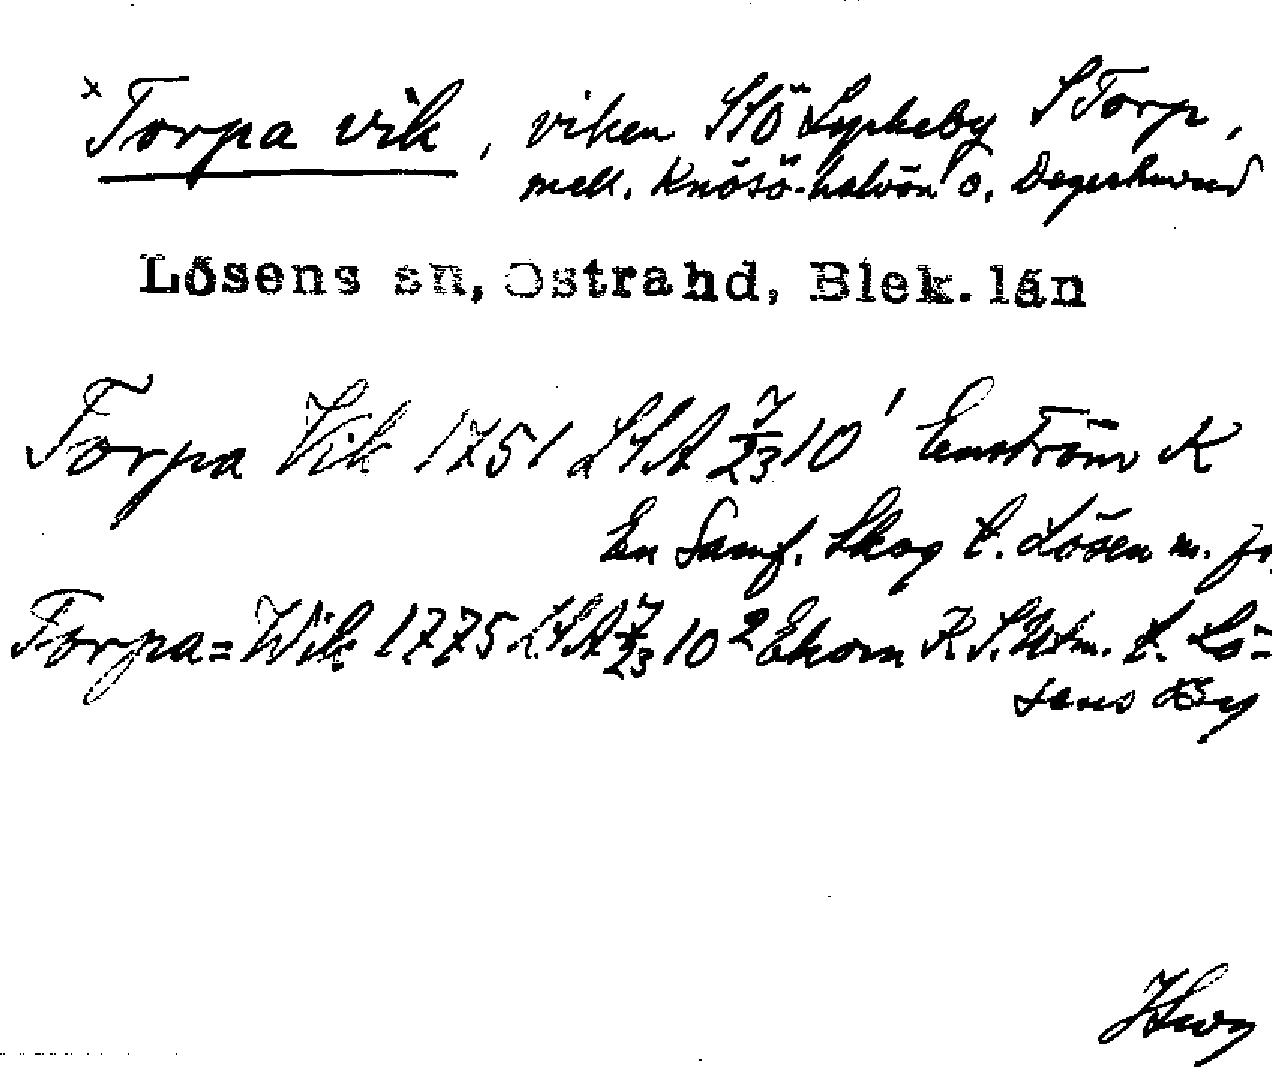 x Torpa vik, viken SSÖ Lyckeby S Torp,
mell. Knösö-halvön o.
Lösens sn, Östra hd, Blek. län
Torpa Vik 1751 LSA 7/23 10 1 Enström K
En Samf. Skog t. Lösen m. fl.
Torpa=Wik 1775 LSA 7/23 10 2 Ekorn K. S. Utm. t. Lö-
sens By